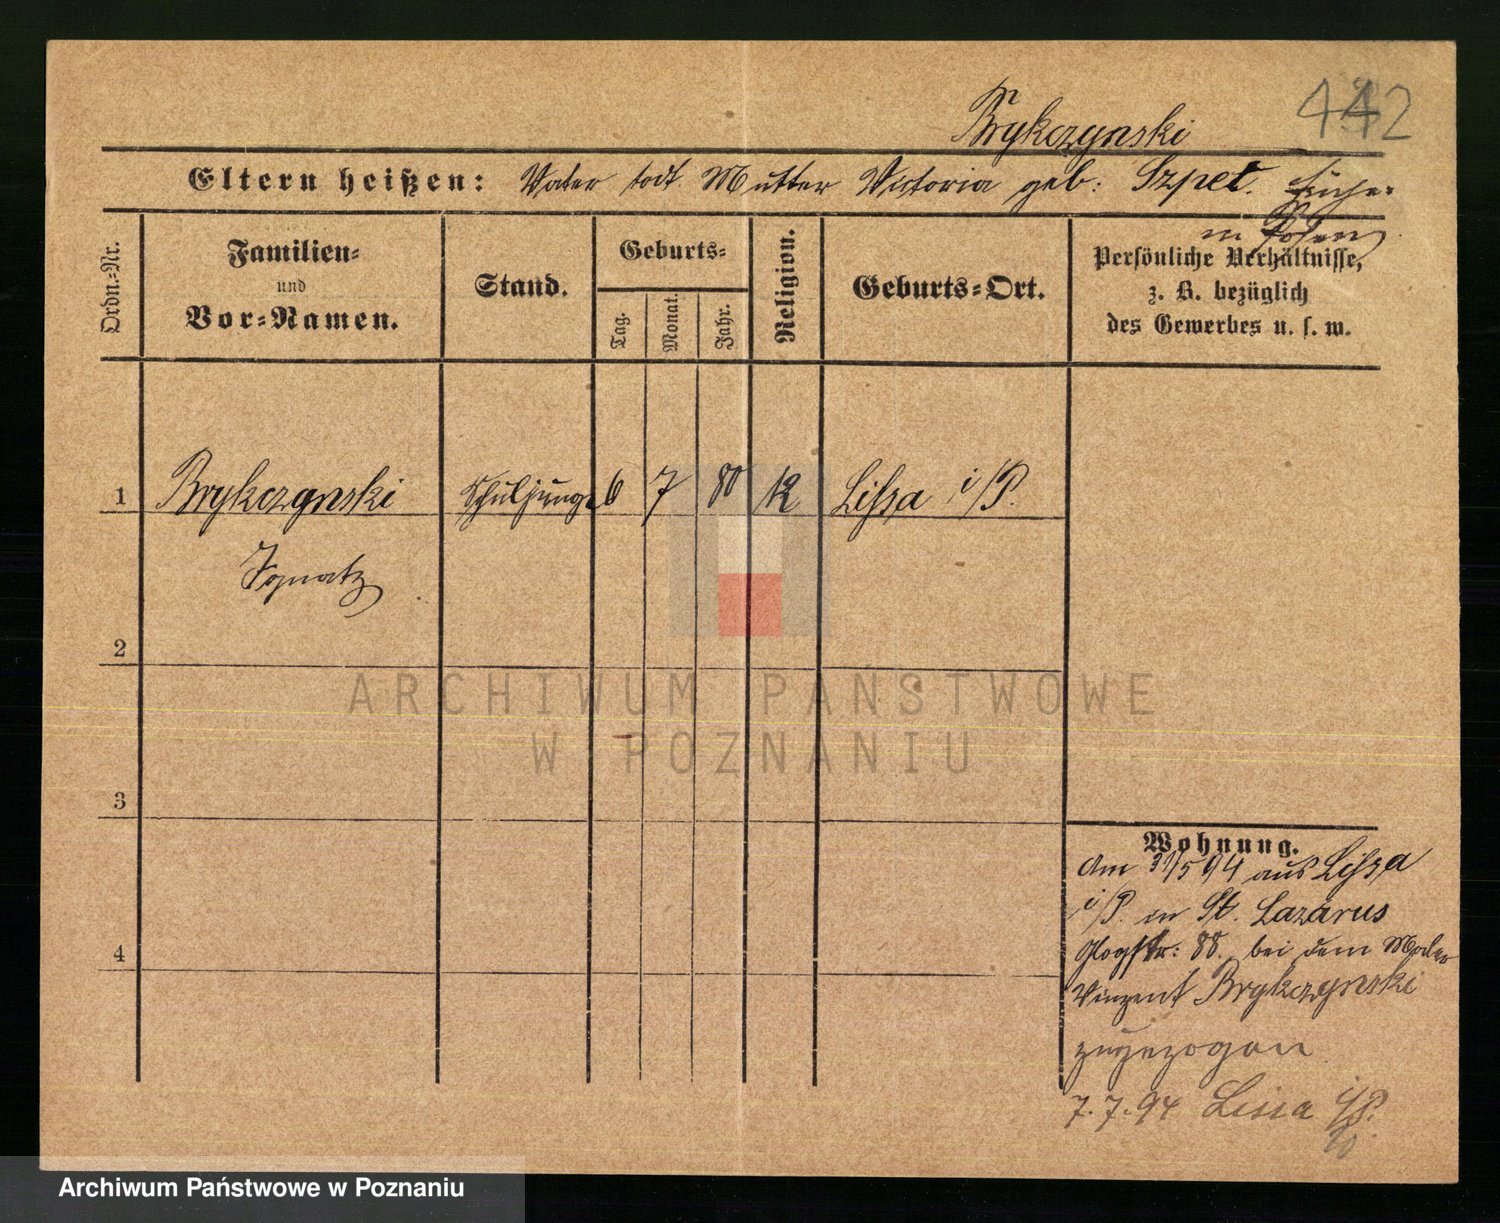 Brykczynski
442
Eltern heißen: Vater todt. Mutter Victoria geb: Szpet.
in Posen
Ordn.=Nr.
Familien=
und
Vor=Namen.
Stand.
Geburts=
Tag.
Monat.
Jahr.
Religion.
Geburts=Ort.
Persönliche Verhältnisse,
z. B. bezüglich
des Gewerbes u. s. w.
1 Brykczynski Schuljunge 6 7 80 k Lissa i/P.
Ignatz
2
3
4
Wohnung.
Am 31/5 94 aus Lissa
i/P. in St. Lazarus
Glogstr: 88. bei dem Maler
Vinzent Brykczynski
zugezogen
7.7.94 Lissa i/P.
ARCHIWUM PAŃSTWOWE
W POZNANIU
Archiwum Państwowe w Poznaniu